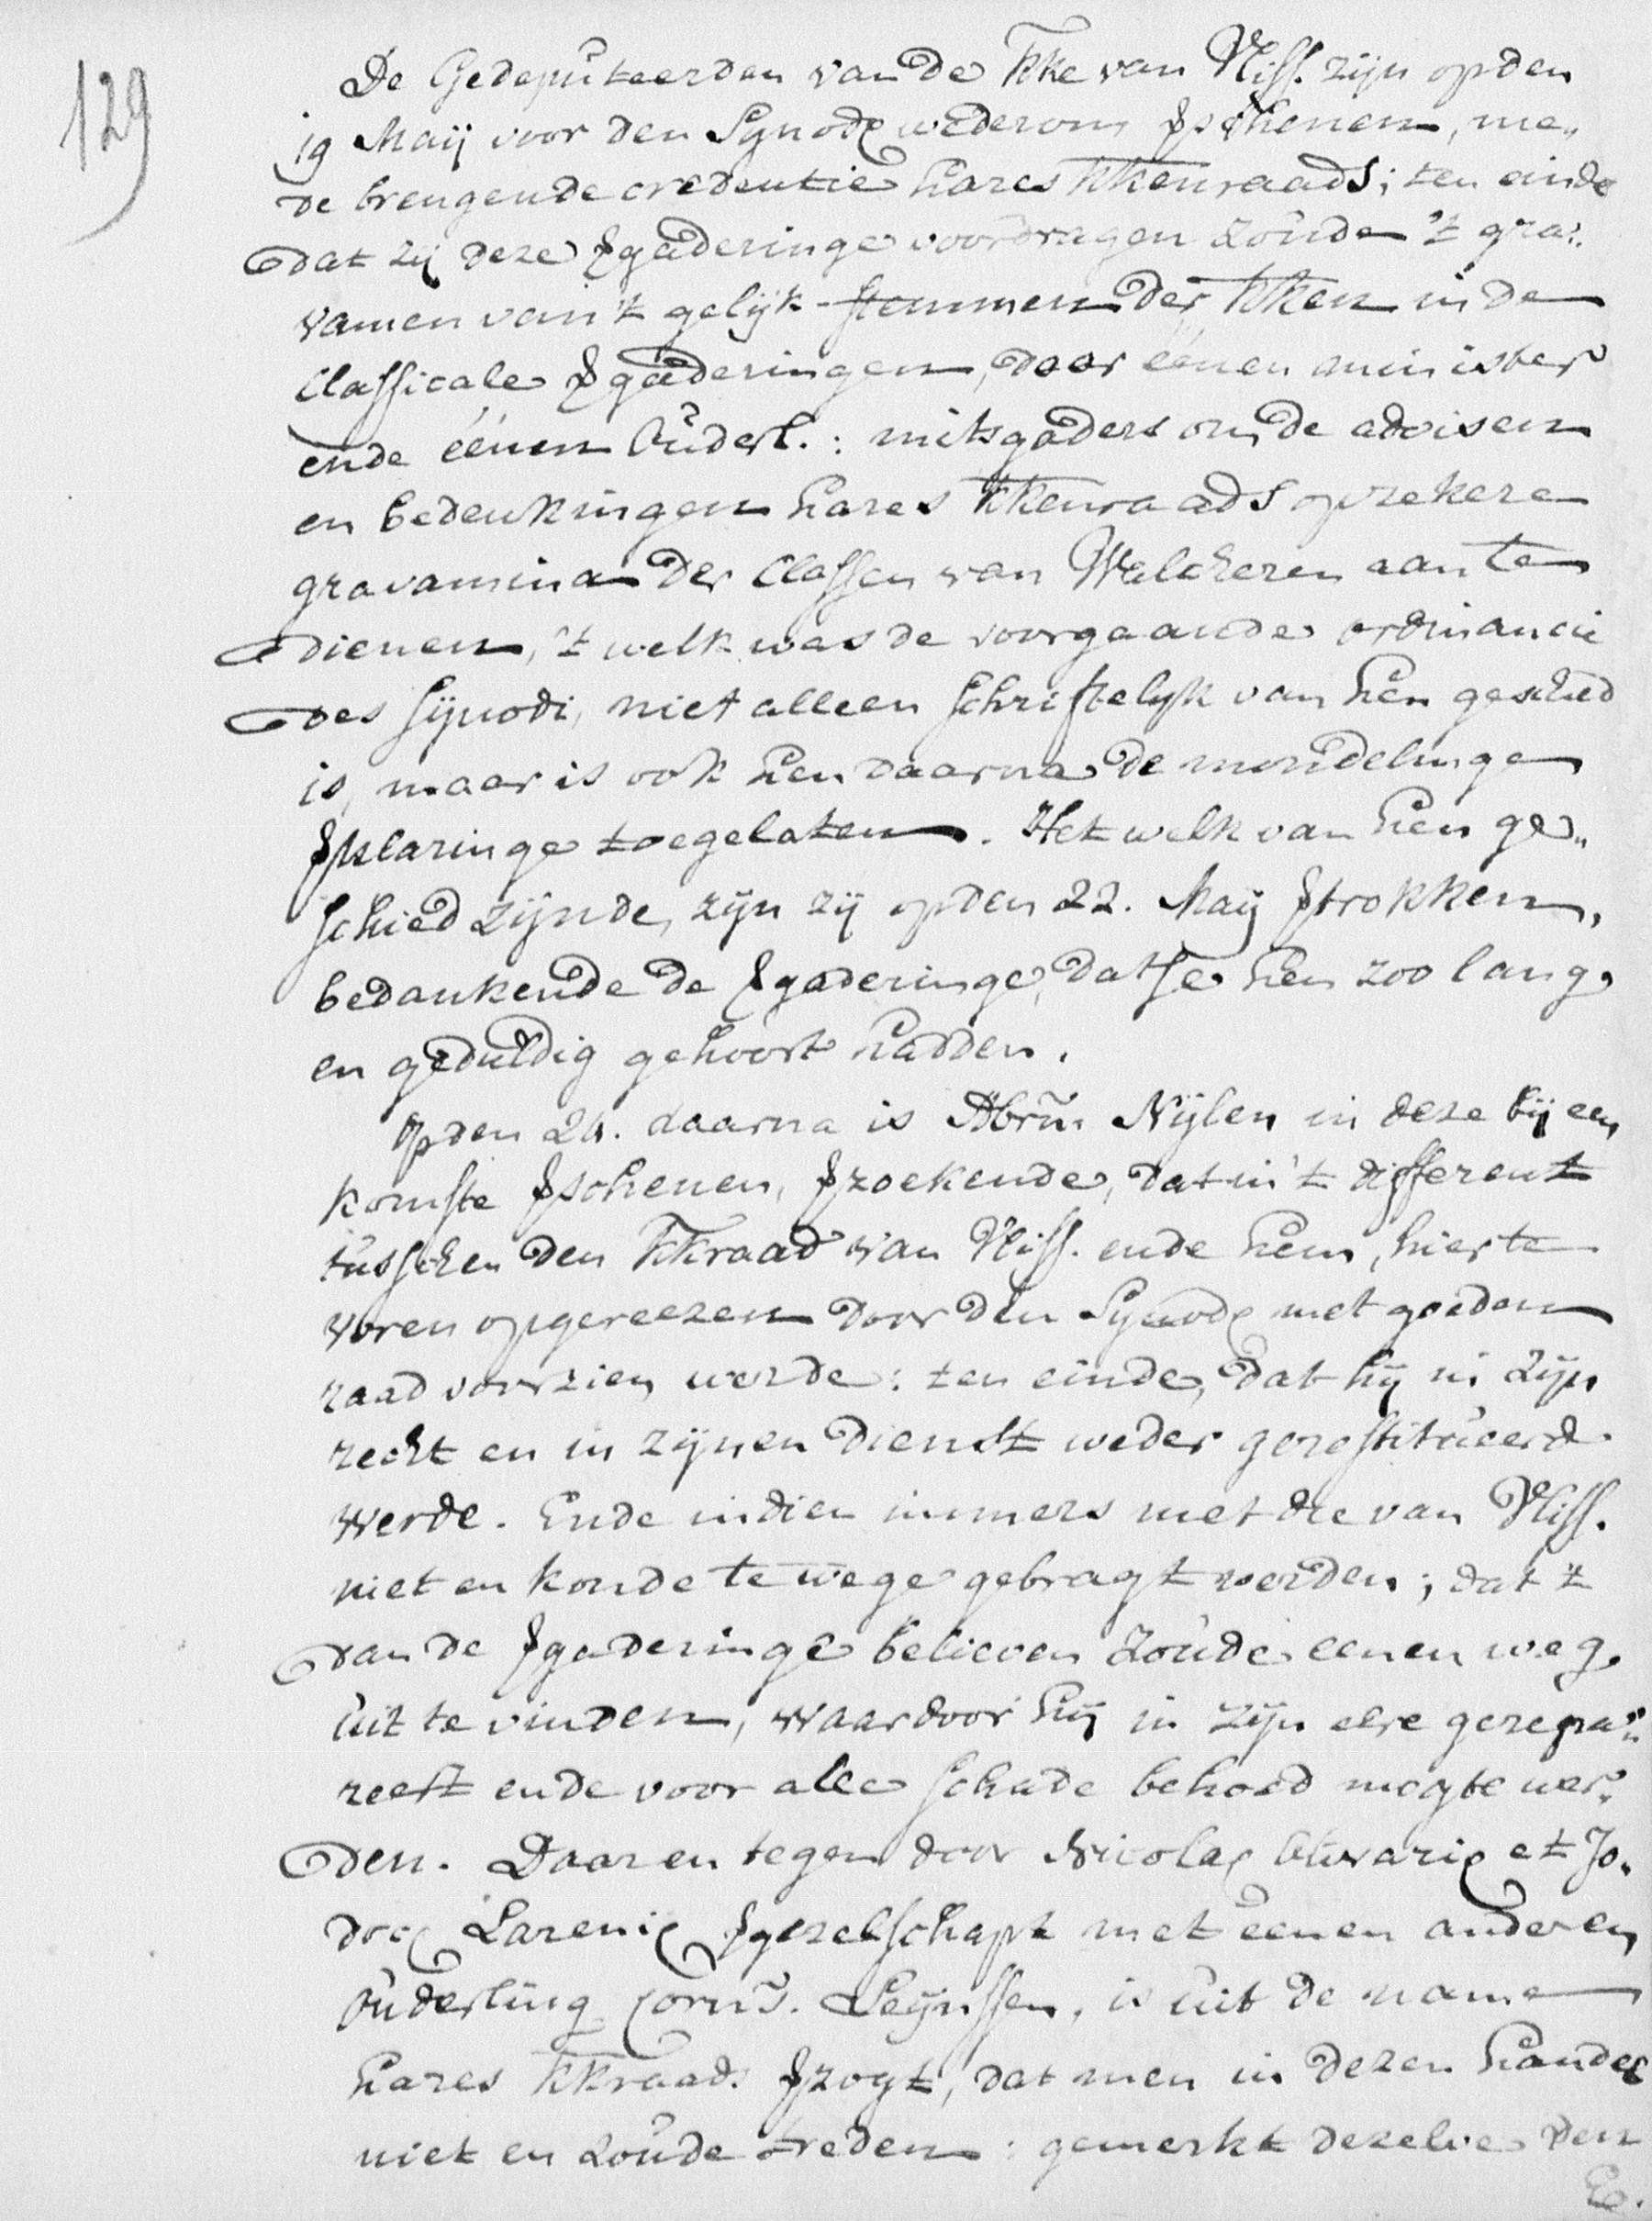 129
De Gedeputeerden van de kke van Vliss. zijn op den
19 Maij voor den Synodo wederom vschenen, me„
de brengende credentie hares kkenraads; ten einde
dat zij deze vgaderinge voordragen zoude 't gra„
vamen van 't gelijk-stemmen der kken in de
Classicale vgaderingen, door éénen minister
ende éénen Ouderl.: mitsgaders om de advisen
en bedenkingen hares kkenraads op zekere
gravamina der Classen van Walcheren aan te
dienen, 't welk was de voorgaande ordinancie
des Sijnodi, niet alleen schriftelyk van hen geschied
is, maar is ook hen daarna de mondelinge
vklaringe toegelaten. Het welk van hen ge„
schied zijnde, zijn zij op den 22. Maij vtrokken,
bedankende de vgaderinge, datse hen zoo lang
en geduldig gehoort hadden.
Op den 24. daarna is Abrm̃ Nijlen in deze bij een
komste vschenen, vzoekende, dat in 't different
tusschen den kkraad van Vliss. ende hem, hier te
voren opgereezen door den Synodo met goeden
raad voorzien werde: ten einde, dat hij in zijn
recht en in zijnen dienst weder gerestitueerd
werde. Ende indien immers met die van Vliss.
niet en konde te wege gebragt worden; dat 't
dan de vgaderinge believen zoude eenen weg
uit te vinden, waardoor hij in zijn eere gerepa„
reert ende voor alle schade behoed mogte wer„
den. Daar en tegen door Nicolas et Jo„
doc Larenis vgezelschapt met eenen anderen
ouderling Corns. Leijnssen, is uit de name
hares kkraads vzogt, dat men in dezen handel
niet en zoude treden: gemerkt dezelve den
E.